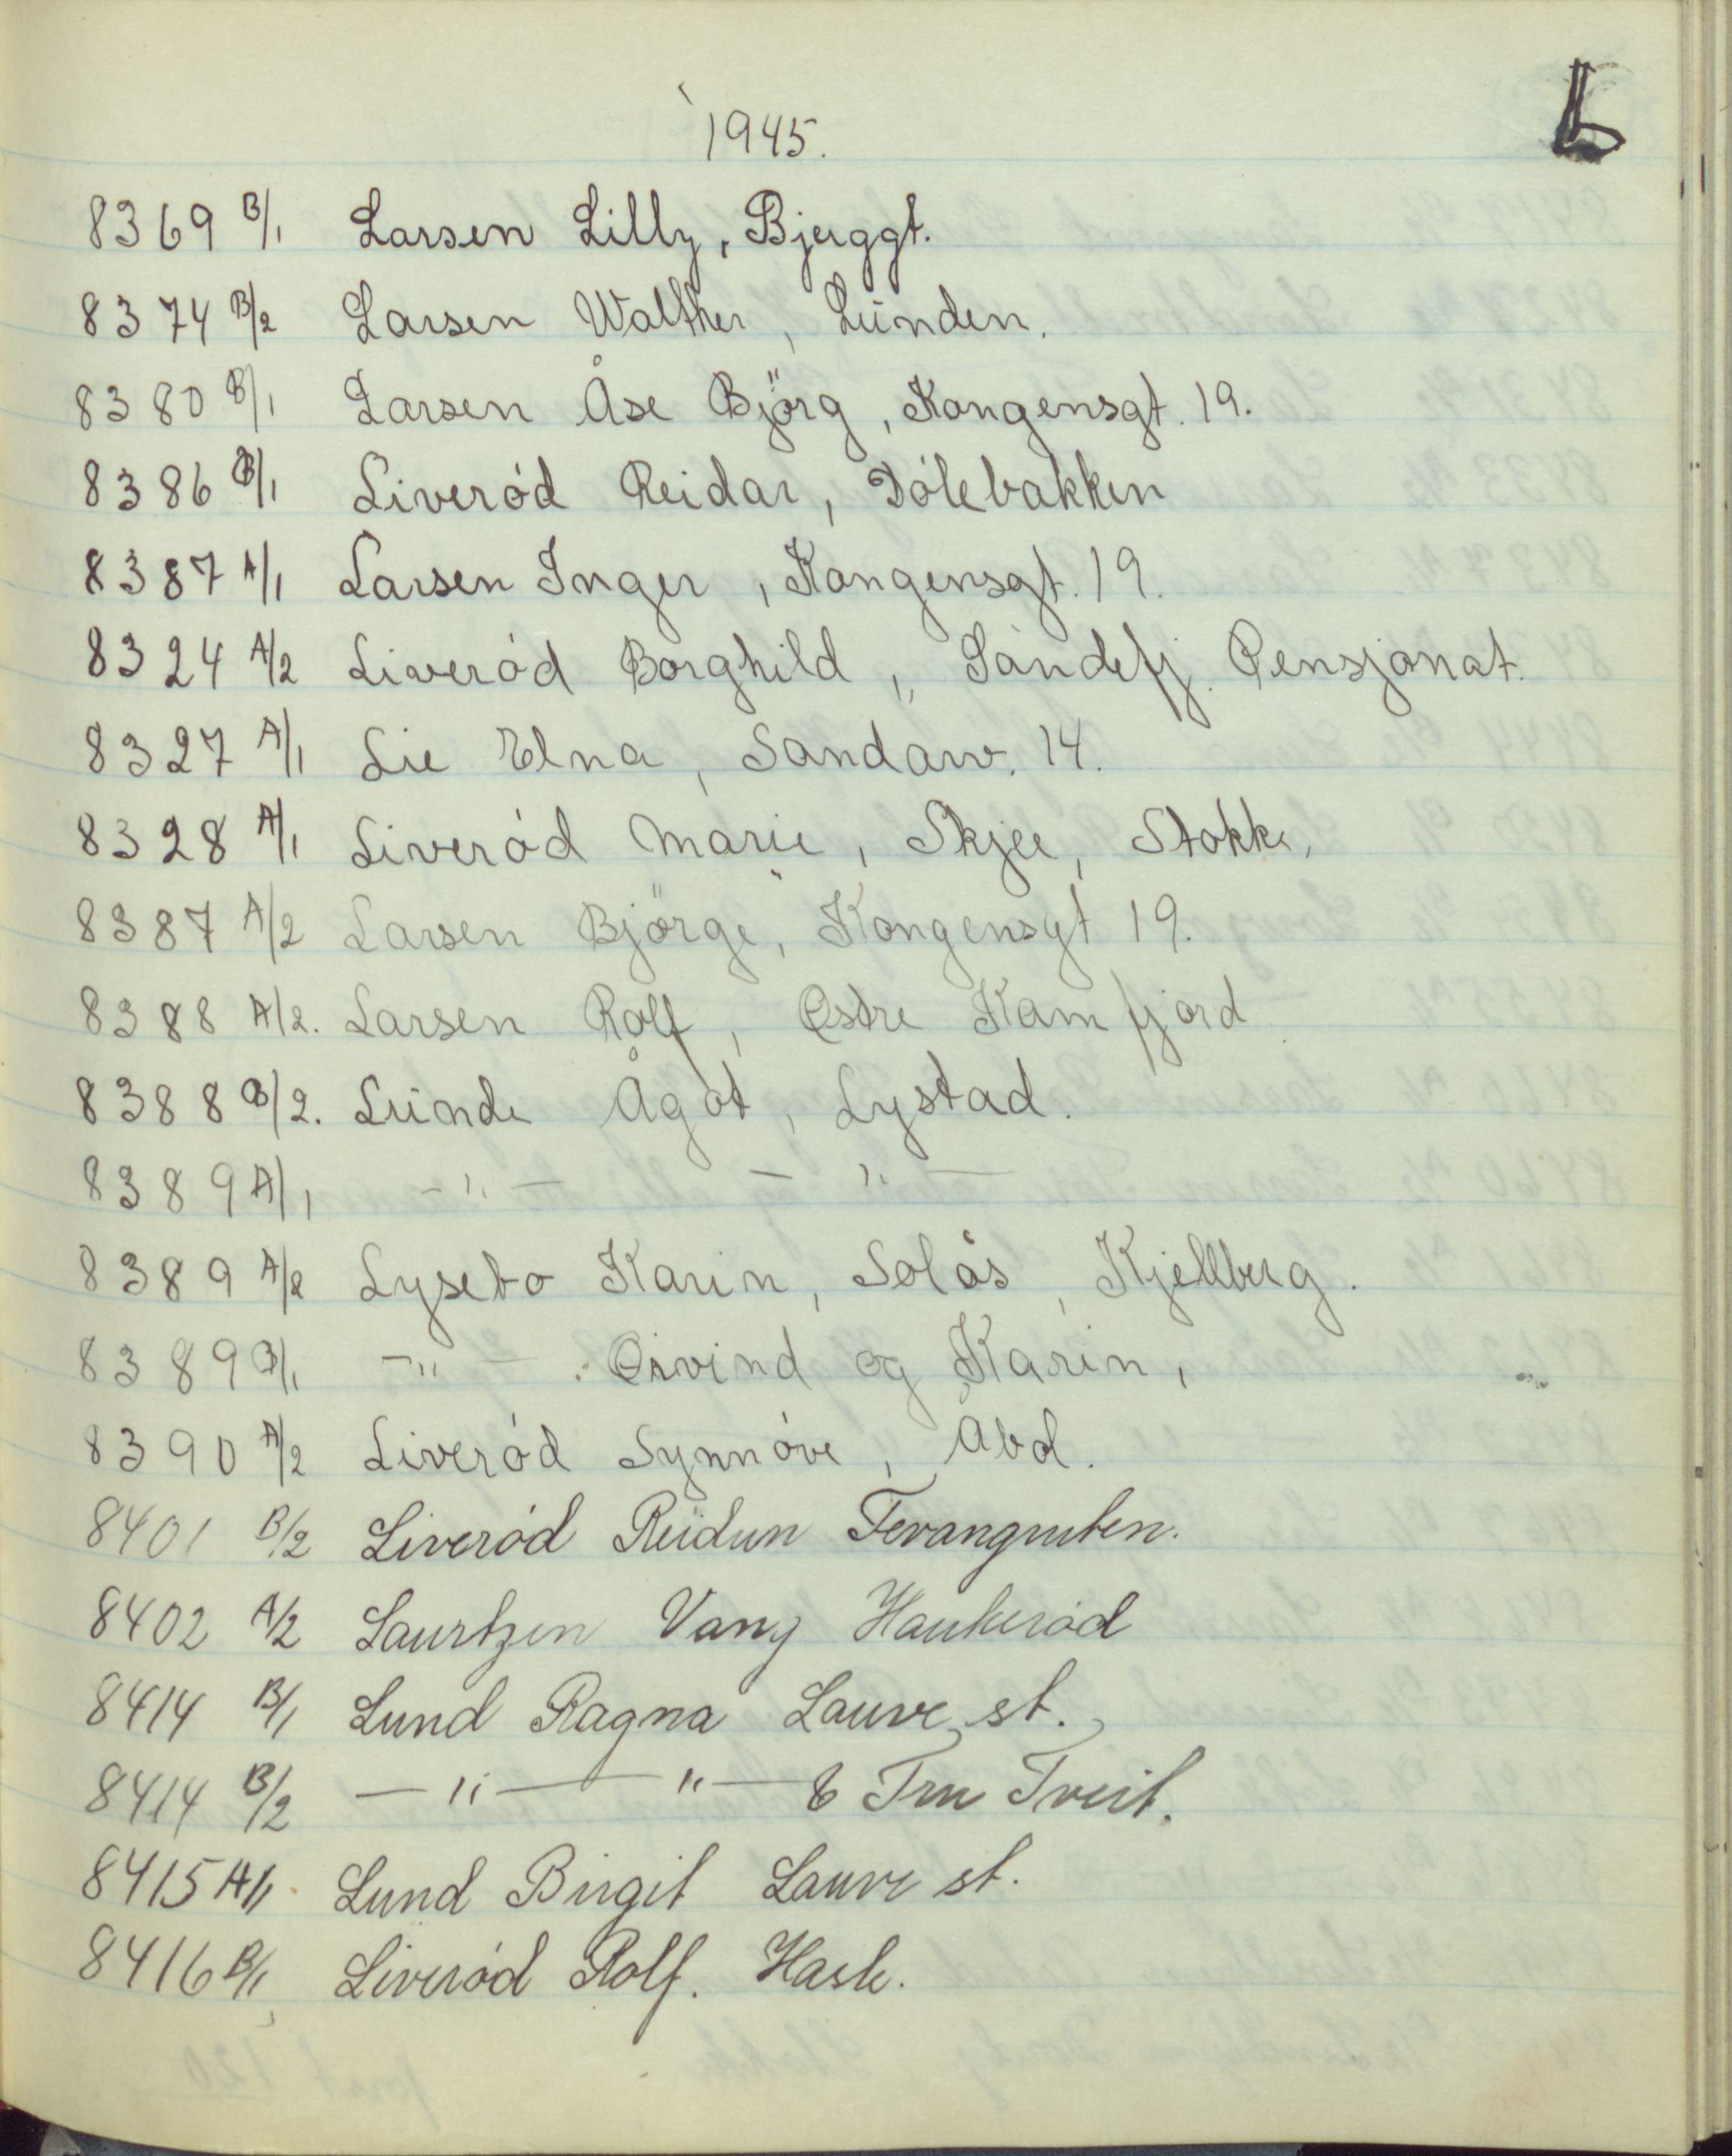 L
1945.
8369 B/1 Larsen Lilly, Bjerggt.
8374 B/2 Larsen Walther, Lunden.
8380 B/1 Larsen Åse Björg, Kongensgt. 19.
8386 B/1 Liveród Reidar, Dólebakken
8387 A/1 Larsen Inger, Kongensgt. 19.
8324 A/2 Liveród Borghild, Sandefj. Pensjonat.
8327 A/1 Lie Elna, Sandarv. 14.
8328 A/1 Liveród Marie, Skjee, Stokke,
8387 A/2 Larsen Björge, Kongensgt 19.
8388 A/2. Larsen Rolf, Østre Kamfjord
8388 B/2. Lunde Ågot, Lystad.
8389 A/1 -"- -"-
8389 A/2 Lysebo Karin, Solås, Kjellberg.
8389 B/1 -"- Øivind og Karin,
8390 A/2 Liveród Synnóve, Åbol.
8401 B/2 Liveród Reidun Fevangruten.
8402 A/2 Laurtzen Vany Haukeród
8414 B/1 Lund Ragna Lauve st.
8414 B/2 -"- "- & Tveit.
8415 A/1 Lund Birgit Lauve st.
8416 B/1 Liveród Rolf. Hasle.